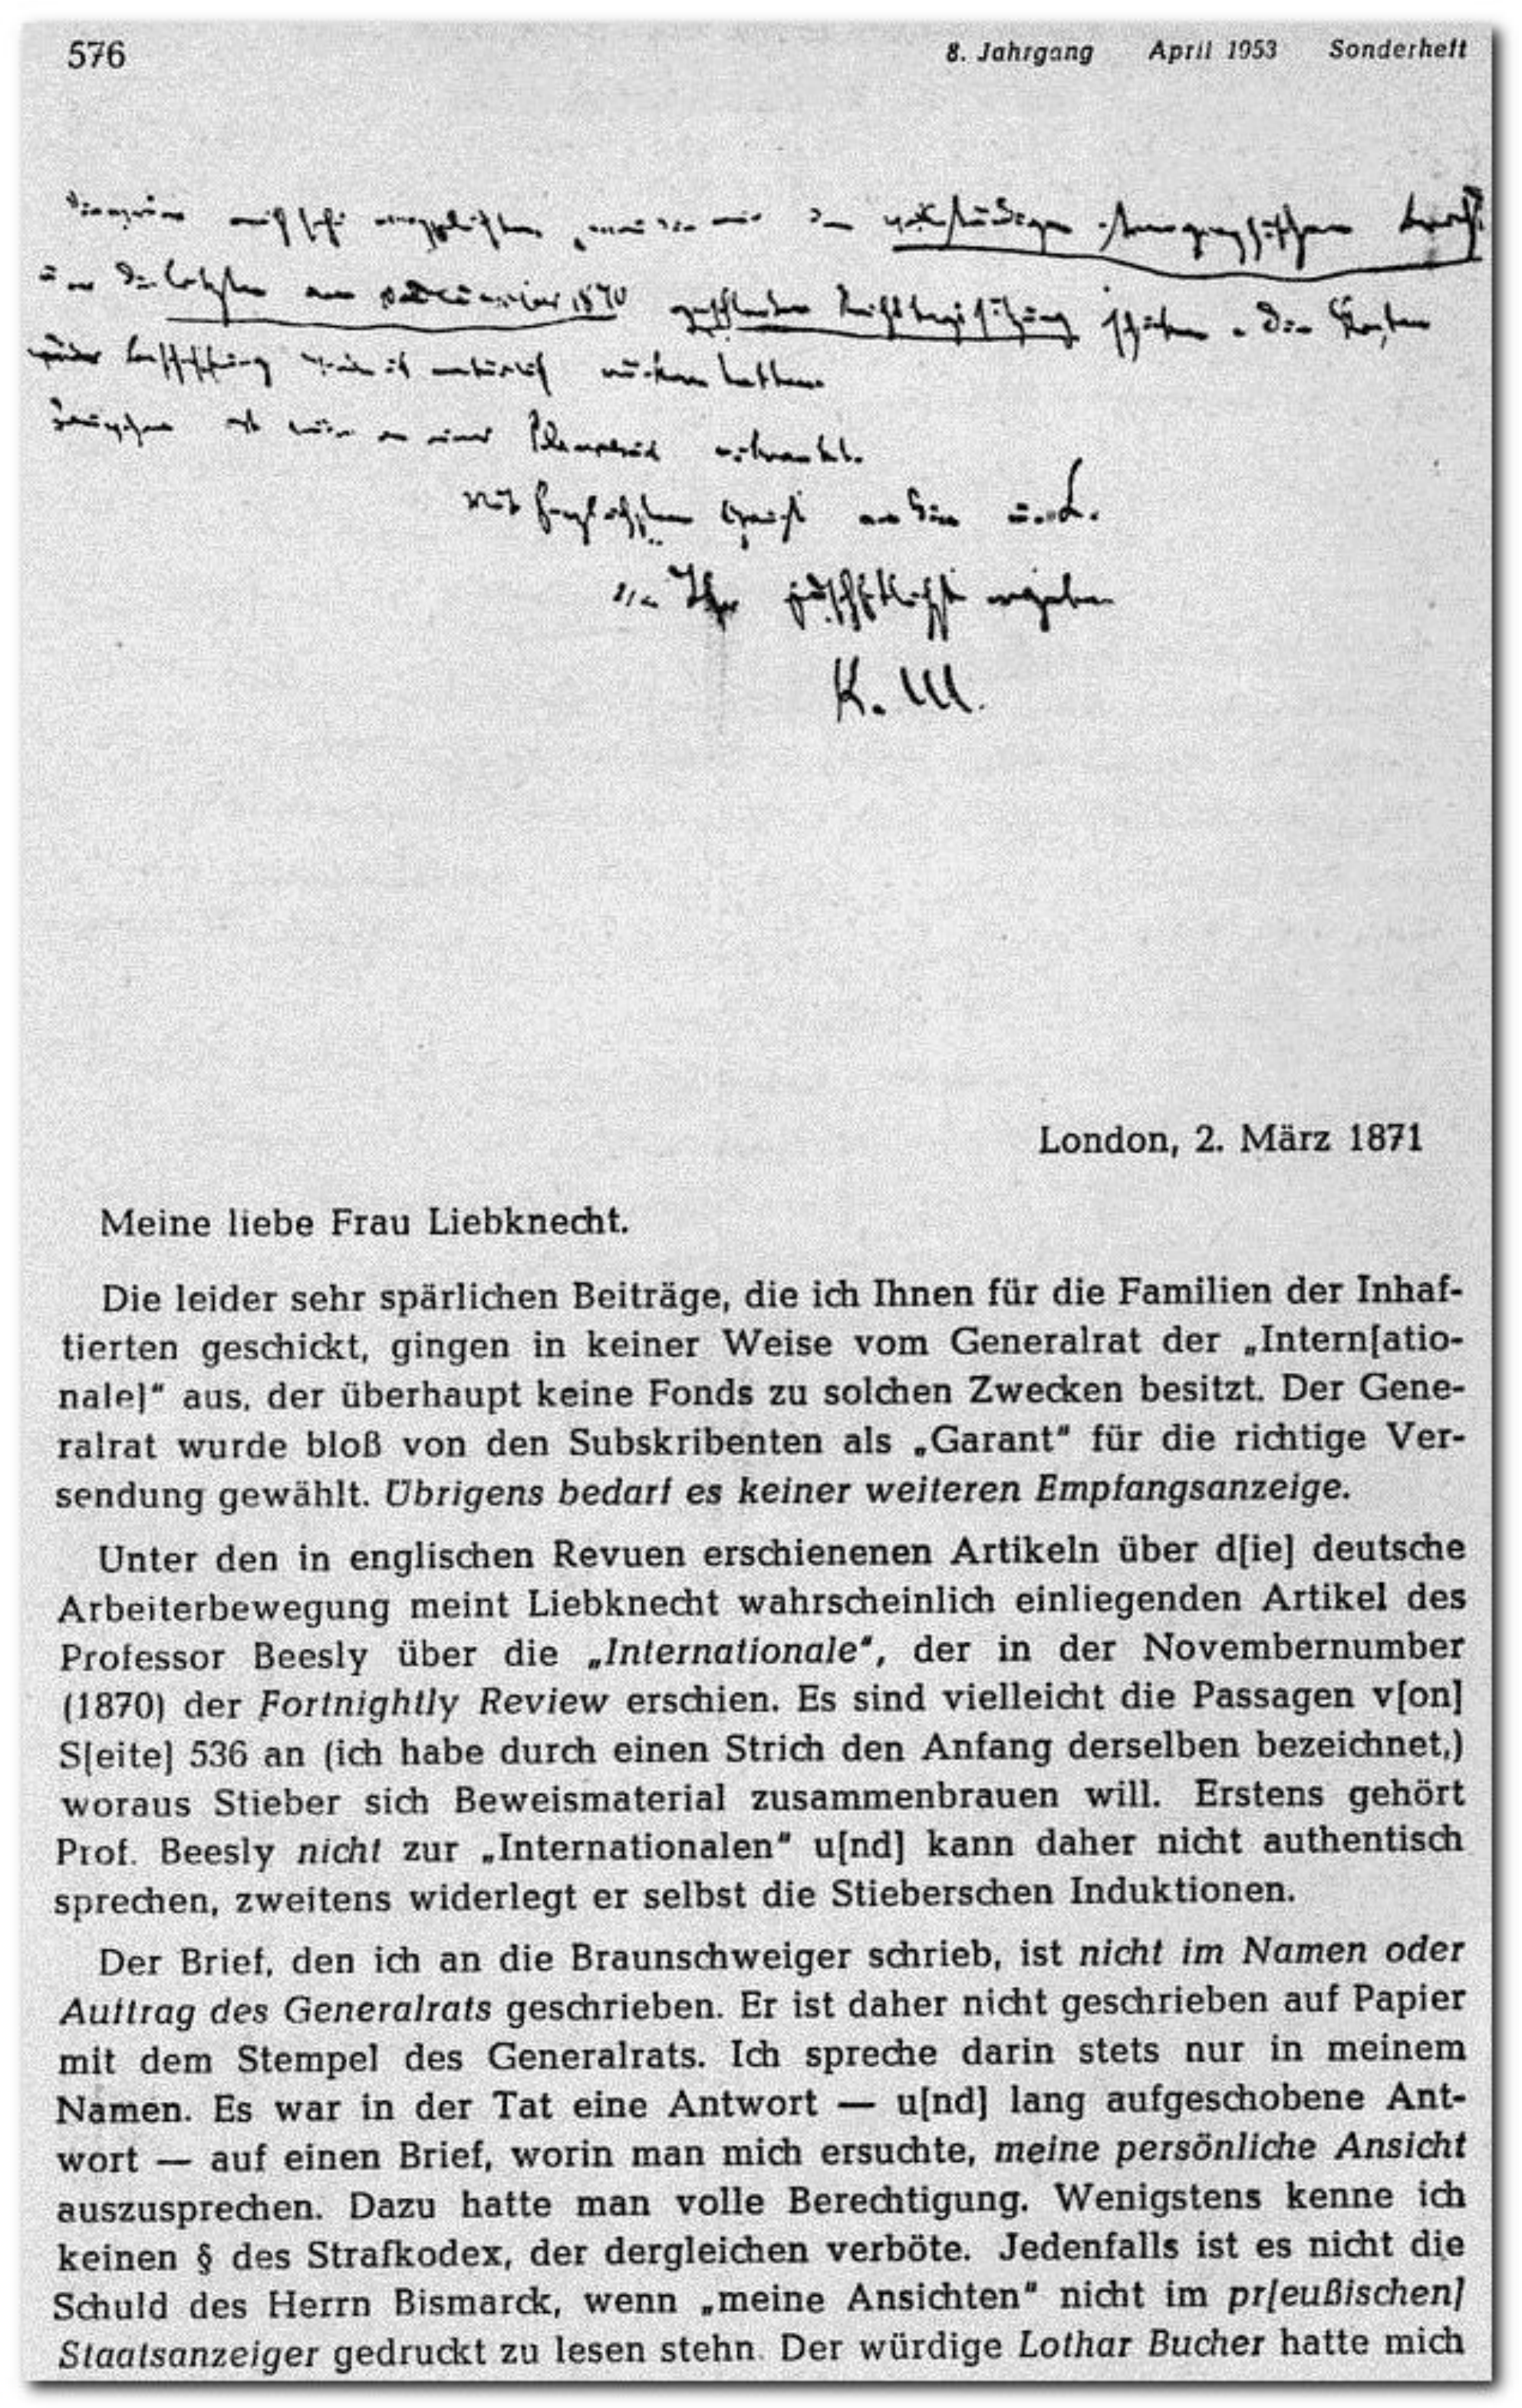 576 8. Jahrgang April 1953 Sonderheft
mich sehr
1870
Mit
Ihr
K. M.
London, 2. März 1871
Meine liebe Frau Liebknecht.
Die leider sehr spärlichen Beiträge, die ich Ihnen für die Familien der Inhaf-
tierten geschickt, gingen in keiner Weise vom Generalrat der „Intern[atio-
nale]“ aus, der überhaupt keine Fonds zu solchen Zwecken besitzt. Der Gene-
ralrat wurde bloß von den Subskribenten als „Garant“ für die richtige Ver-
sendung gewählt. Übrigens bedarf es keiner weiteren Empfangsanzeige.
Unter den in englischen Revuen erschienenen Artikeln über d[ie] deutsche
Arbeiterbewegung meint Liebknecht wahrscheinlich einliegenden Artikel des
Professor Beesly über die „Internationale“, der in der Novembernumber
(1870) der Fortnightly Review erschien. Es sind vielleicht die Passagen v[on]
S[eite] 536 an (ich habe durch einen Strich den Anfang derselben bezeichnet,)
woraus Stieber sich Beweismaterial zusammenbrauen will. Erstens gehört
Prof. Beesly nicht zur „Internationalen“ u[nd] kann daher nicht authentisch
sprechen, zweitens widerlegt er selbst die Stieberschen Induktionen.
Der Brief, den ich an die Braunschweiger schrieb, ist nicht im Namen oder
Auftrag des Generalrats geschrieben. Er ist daher nicht geschrieben auf Papier
mit dem Stempel des Generalrats. Ich spreche darin stets nur in meinem
Namen. Es war in der Tat eine Antwort — u[nd] lang aufgeschobene Ant-
wort — auf einen Brief, worin man mich ersuchte, meine persönliche Ansicht
auszusprechen. Dazu hatte man volle Berechtigung. Wenigstens kenne ich
keinen § des Strafkodex, der dergleichen verböte. Jedenfalls ist es nicht die
Schuld des Herrn Bismarck, wenn „meine Ansichten“ nicht im pr[eußischen]
Staatsanzeiger gedruckt zu lesen stehn. Der würdige Lothar Bucher hatte mich